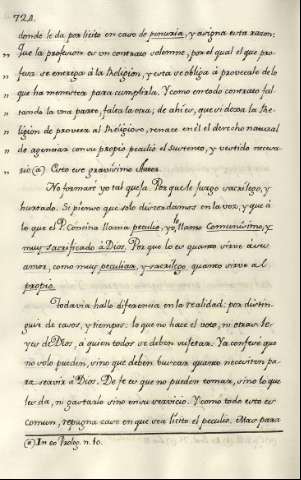 724.
donde le da por lícito en caso de penuria, y asigna esta razon:
„ Que la profesion es un contrato solemne, por el qual el que pro-
„ fesa se entrega à la Religión, y esta se obliga à proveerle de lo
„ que ha menester para cumplirla. Y como en todo contrato fal-
„ tando la una parte, falea la otra; de ahí es, que si dexa la Re-
„ ligión de proveer al Religioso, renace en èl el derecho natural
„ de agenciar con su propio peculio el sustento, y vestido necesa-
„ rio (a) Esto este gravísimo Autor.
No formaré yo tal quexa. Porque le juzgo sacrílego, y
hurtado. Si pienso que solo discordamos en la voz, y que à
lo que el P. Concina llama peculio, yo lo llamo Comunísimo, y
muy sacrificado à Dios. Porque lo es quanto sirve à su
amor, como muy peculiar, y sacrílego quanto sirve al
propio.
Todavía hallo diferencia en la realidad: por distin-
guir de casos, y tiempos: lo que no hace el voto, ni otras le-
yes de Dios, à quien todos se deben sujetar. Ya confesé que
no solo pueden, sino que deben buscar quanto necesiten pa-
ra servir à Dios. De fe es que no pueden tomar, sino lo que
les da, ni gastarlo sino en su servicio. Y como todo esto es
comun, repugna caso en que sea lícito el peculio. Mas para
(a) In eo Prolog. n. 10.